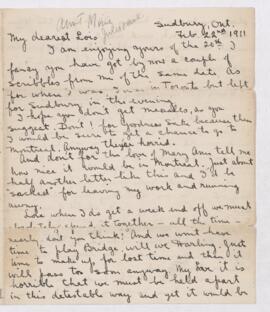 Sudbury, Ont.
Feb. 22nd 1911
My dearest Lois
I am enjoying yours of the 20th I
fancy you have got by now a couple of
scribbles from me of the same date as
for Sudbury in the evening.
I hope you don't get measles, as you
suggest. Don't for goodness sake because then
I would be sure to get a chance to go to
Montreal. Anyway they're horrid.
And don't for the love of Mary Ann tell me
how nice it would be in Montreal. Just about
half another letter like this and I'd be
"sacked" for leaving my work and running
away.
Lois when I do get a week end off we must
it together - all the time -
nearly, don't you think? And we won't have
time to play Bridge, will we Darling. Just
time to make up for lost time and then it
will pass too soon anyway. My dear it is
horrible that we must be held apart
in this detestable way and yet it would be